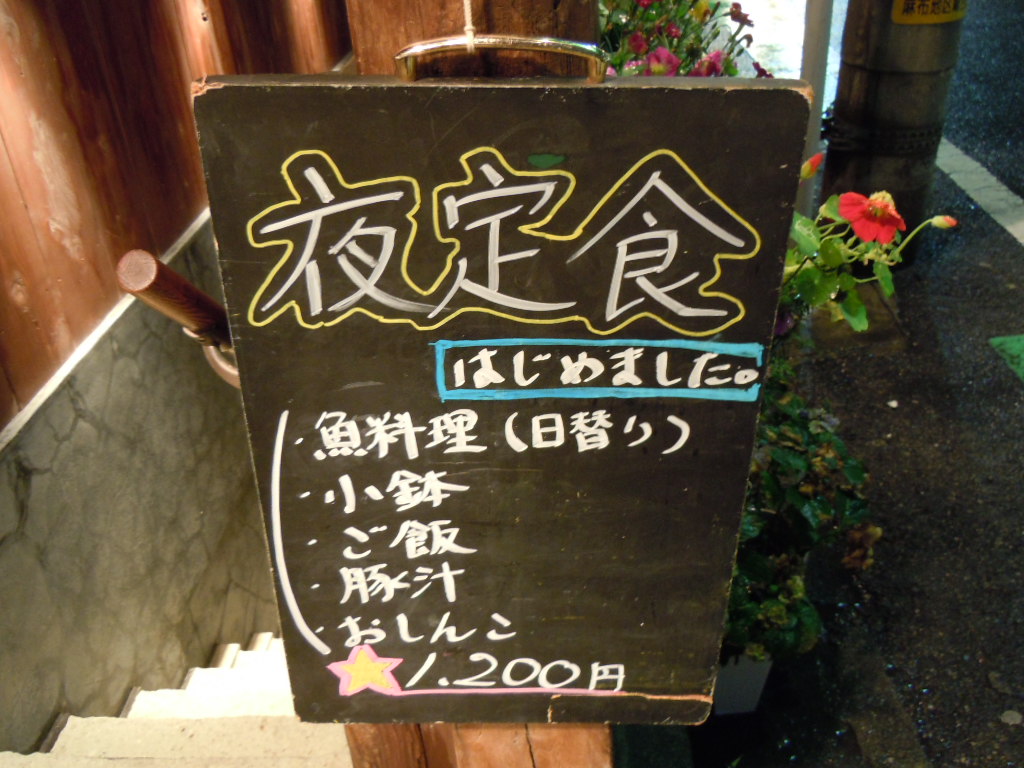 夜定食
はじめました。
・魚料理(日替り)
・小鉢
・ご飯
・豚汁
・おしんこ
1.200円